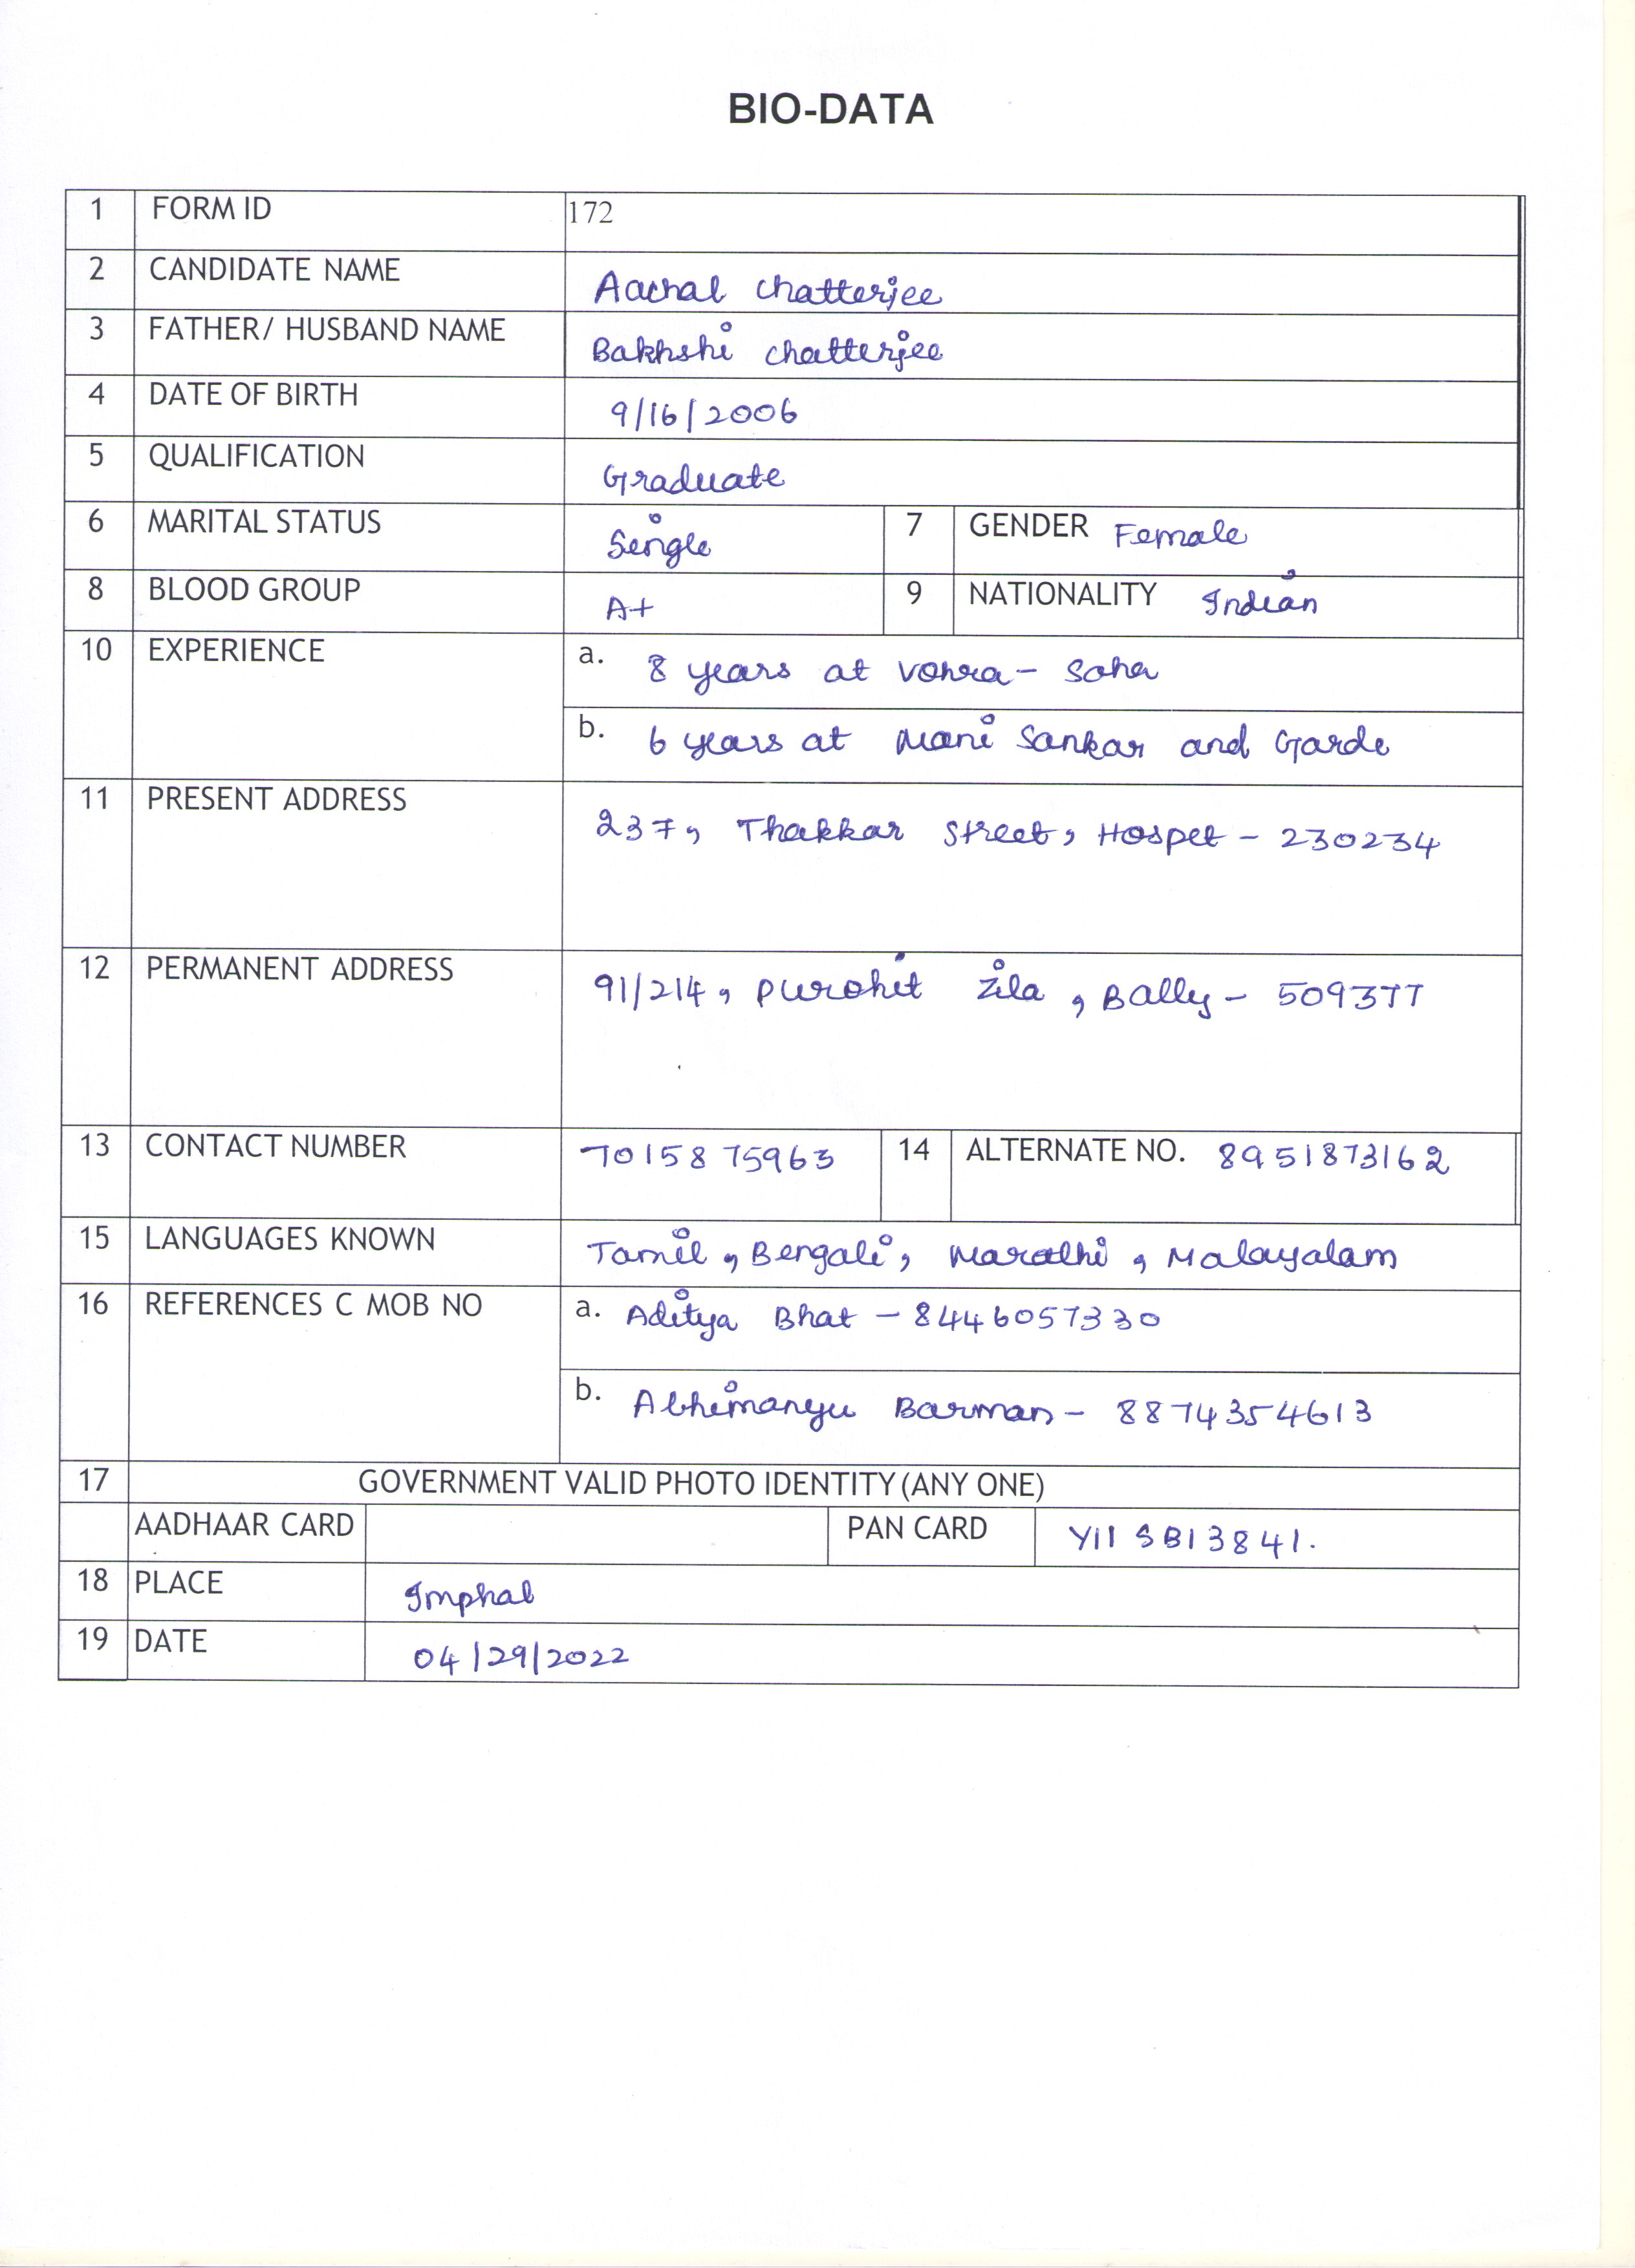 BIO-DATA
1 FORM ID 172
2 CANDIDATE NAME Aachal Chatterjee
3 FATHER/ HUSBAND NAME Bakhshi Chatterjee
4 DATE OF BIRTH 9/16/2006
5 QUALIFICATION Graduate
6 MARITAL STATUS Single 7 GENDER Female
8 BLOOD GROUP A+ 9 NATIONALITY Indian
10 EXPERIENCE a. 8 years at Vohra - Saha
b. 6 years at Mani Sankar and Garde
11 PRESENT ADDRESS 237, Thakkar Street, Hospet - 230234
12 PERMANENT ADDRESS 91/214, Purohit Zila, Bally - 509377
13 CONTACT NUMBER 7015875963 14 ALTERNATE NO. 8951873162
15 LANGUAGES KNOWN Tamil, Bengali, Marathi, Malayalam
16 REFERENCES C MOB NO a. Aditya Bhat - 8446057330
b. Abhimanyu Barman - 8874354613
17 GOVERNMENT VALID PHOTO IDENTITY (ANY ONE)
AADHAAR CARD PAN CARD
18 PLACE Imphal
19 DATE 04/29/2022